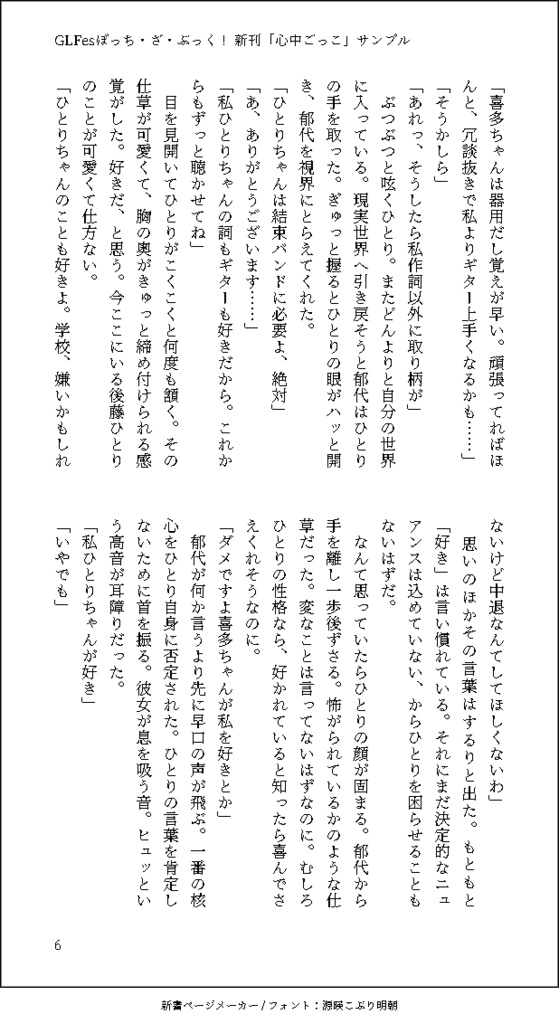 GLFesぼっち・ざ・ぶっく！ 新刊「心中ごっこ」サンプル
「喜多ちゃんは器用だし覚えが早い。頑張ってればほ
んと、冗談抜きで私よりギター上手くなるかも……」
「そうかしら」
「あれっ、そうしたら私作詞以外に取り柄が」
　ぶつぶつと呟くひとり。またどんよりと自分の世界
に入っている。現実世界へ引き戻そうと郁代はひとり
の手を取った。ぎゅっと握るとひとりの眼がハッと開
き、郁代を視界にとらえてくれた。
「ひとりちゃんは結束バンドに必要よ、絶対」
「あ、ありがとうございます……」
「私ひとりちゃんの詞もギターも好きだから。これか
らもずっと聴かせてね」
　目を見開いてひとりがこくこくと何度も頷く。その
仕草が可愛くて、胸の奥がきゅっと締め付けられる感
覚がした。好きだ、と思う。今ここにいる後藤ひとり
のことが可愛くて仕方ない。
「ひとりちゃんのことも好きよ。学校、嫌いかもしれ
ないけど中退なんてしてほしくないわ」
　思いのほかその言葉はするりと出た。もともと
「好き」は言い慣れている。それにまだ決定的なニュ
アンスは込めていない、からひとりを困らせることも
ないはずだ。
　なんて思っていたらひとりの顔が固まる。郁代から
手を離し一歩後ずさる。怖がられているかのような仕
草だった。変なことは言ってないはずなのに。むしろ
ひとりの性格なら、好かれていると知ったら喜んでさ
えくれそうなのに。
「ダメですよ喜多ちゃんが私を好きとか」
　郁代が何か言うより先に早口の声が飛ぶ。一番の核
心をひとり自身に否定された。ひとりの言葉を肯定し
ないために首を振る。彼女が息を吸う音。ヒュッとい
う高音が耳障りだった。
「私ひとりちゃんが好き」
「いやでも」
6
新書ページメーカー / フォント：源暎こぶり明朝